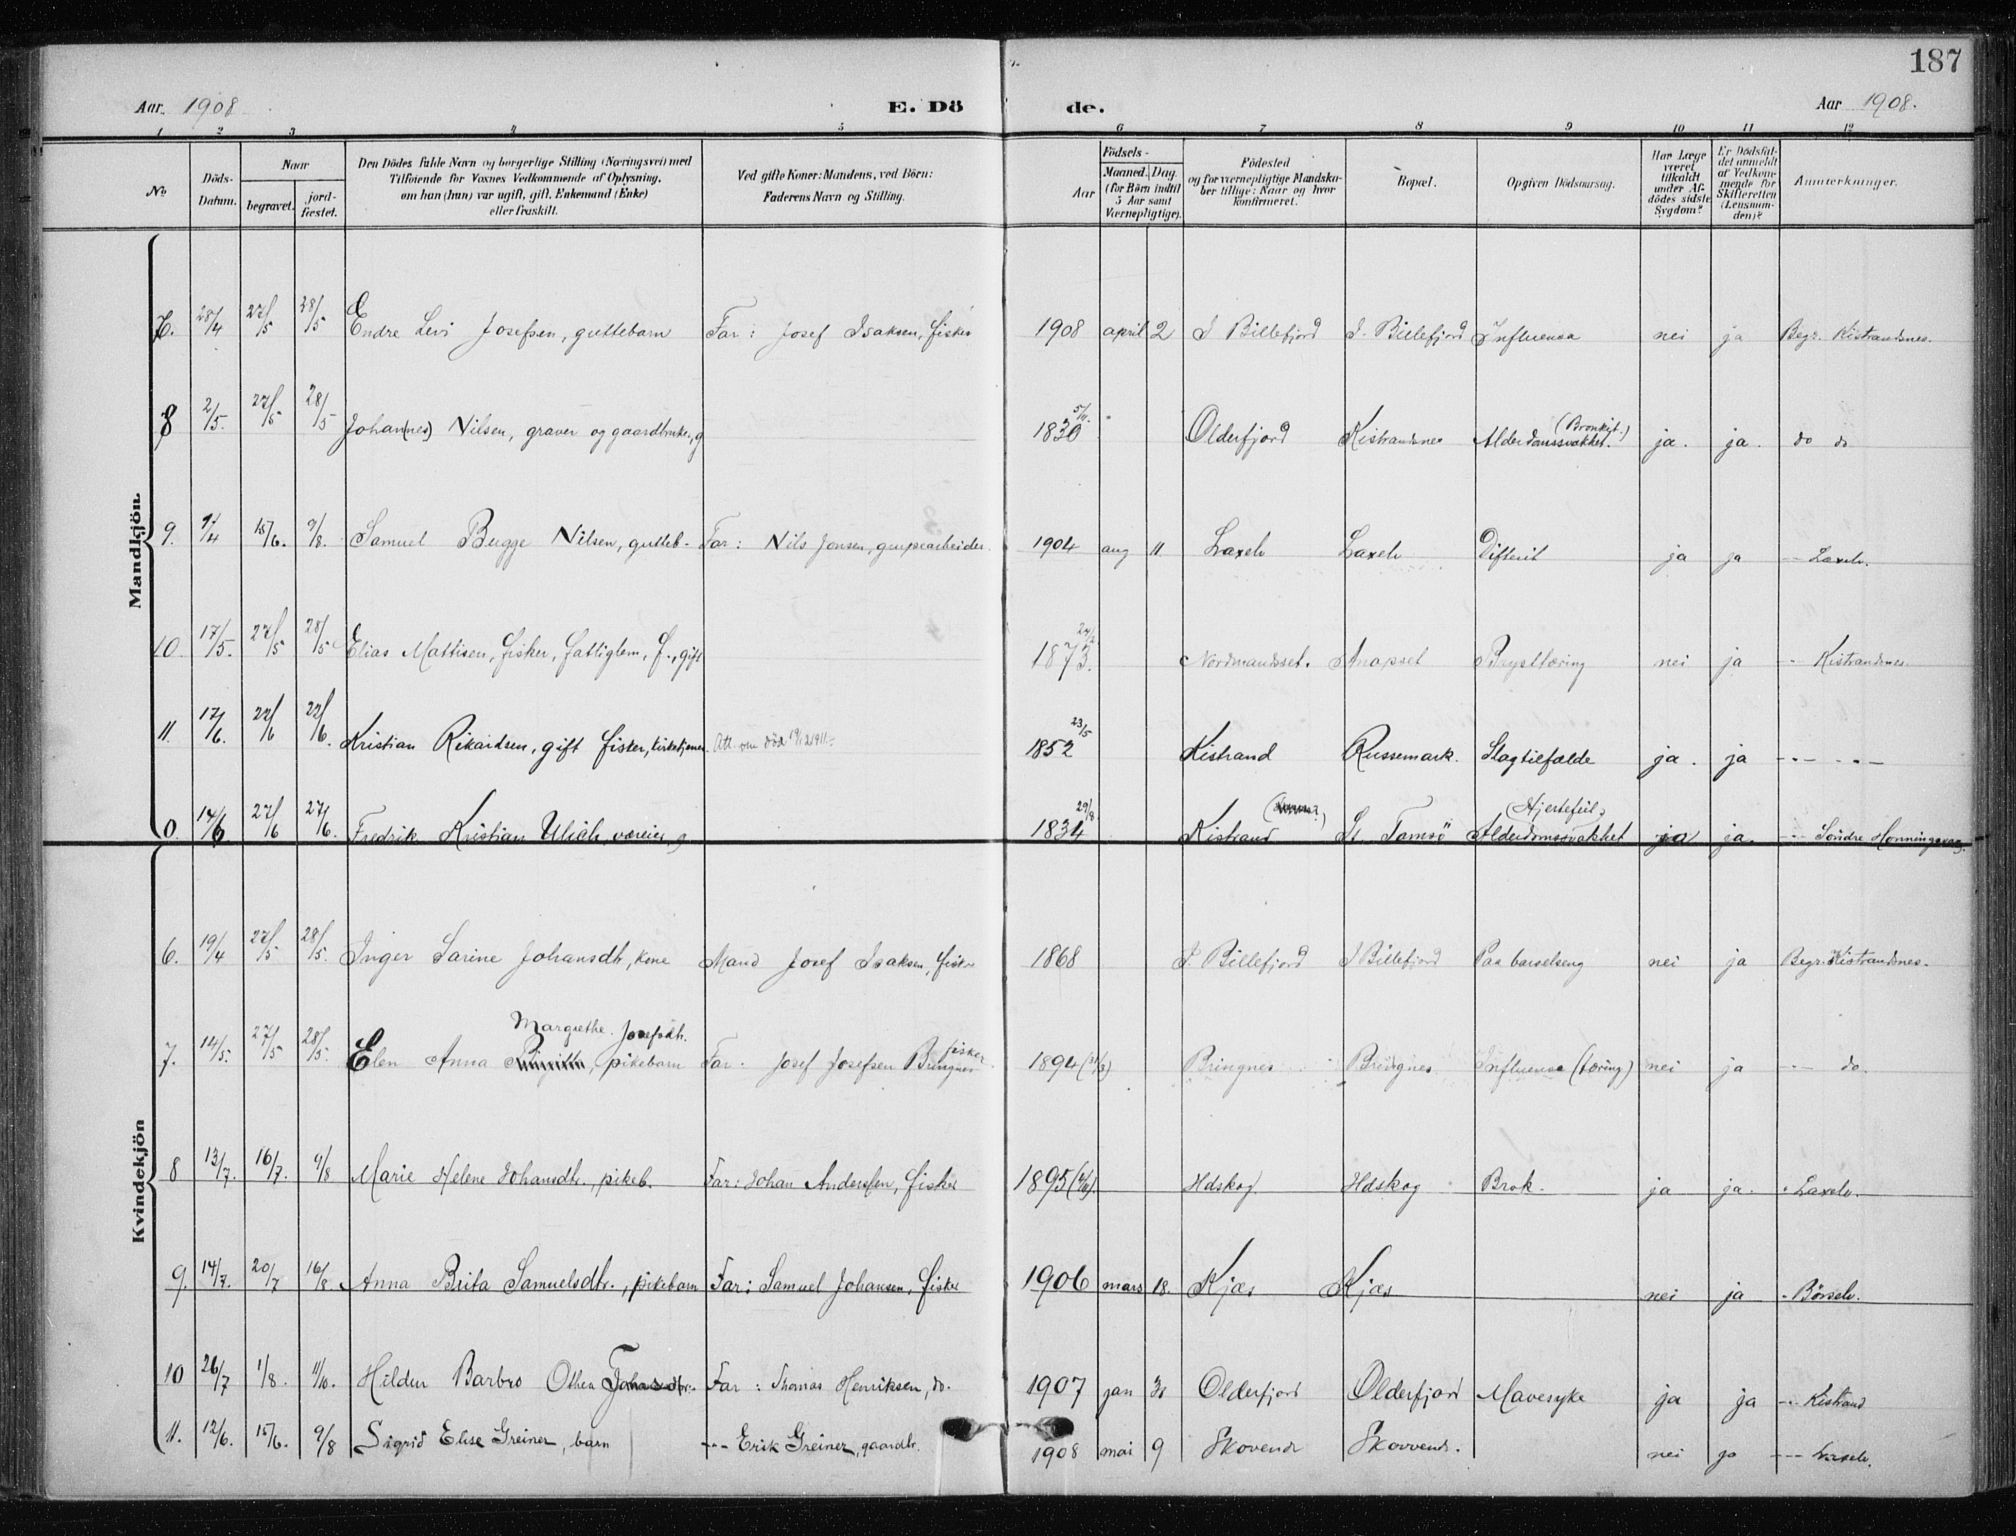 187
Aar. 1908 E. Dö de. Aar 1908.
1 2 3 4 5 6 7 8 9 10 11 12
No Döds-Datum. Naar begravet. jord-fæstet. Den Dödes fulde Navn og borgerlige Stilling (Næringsvei) med Tilföiende for Voxnes Vedkommende af Oplysning, om han (hun) var ugift, gift, Enkemand (Enke) eller fraskilt. Ved gifte Koner: Mandens, ved Börn: Faderens Navn og Stilling. Födsels- Aar Maaned. Dag. (for Börn indtil 5 Aar samt Værnepligtige). Födested og for værnepligtige Mandskaber tillige: Naar og hvor konfirmeret. Bopæl. Opgiven Dödsaarsag. Har Læge været tilkaldt under Afdödes sidste Sygdom? Er Dödsfaldet anmeldt af Vedkommende for Skifteretten (Lensmanden)? Anmærkninger.
Mandkjön.
7. 28/4 27/5 28/5 Endre Levi Josefsen, guttebarn Far: Josef Isaksen, fisker 1908 april 2 I Billefjord I. Billefjord Influensa nei ja Begr. Kistrandsnes.
8 2/5. 27/5 28/5 Johan(nes) Nilsen, graver og gaardbruker, g 1830 5/11. Olderfjord Kistrandsnes Alderdomssvakhet. (Bronkit.) ja. ja. do do
9. 9/4 15/6. 9/8. Samuel Bugge Nilsen, gutteb- Far: Nils Jonsen, grupearbeider. 1904 aug 11 Laxelv Laxelv Difterit ja ja -- Laxelv.
10. 17/5. 27/5 28/5 Elias Mattisen, fisker, fattiglem, f., gift 1873. 24/2 Nordmandsset. Anopset Brysttæring nei ja " Kistrandsnes.
11. 17/6. 22/6 22/6. Kristian Rikardsen, gift fisker, kirketjener. Att. om död 19/12 1911.- 1852 23/5 Kistrand Russemark. Slagtilfælde ja. ja -"- -"-
0. 14/6 27/6 27/6. Fredrik Kristian Ulich, væreier, g 1834 29/8 Kistrand St. Tamsö Alderdomssvakhet (Hjertefeil.) ja ja. -"- Söndre Honningsvaag.
Kvindekjön
6. 19/4 27/5 28/5. Inger Sarine Johansdt, kone Mand Josef Isaksen, fisker 1868 I. Billefjord I Billefjord Paa barselseng nei ja Begr. Kistrandsnes.
7. 14/5. 27/5 28/5. Elen Anna Margrethe Josefsdtr., pikebarn Far. Josef Josefsen Bringnes fisker 1894 (31/3) Bringnes Bringnes. Influensa (tæring) nei ja -"- do.
8 13/7. 16/7. 9/8 Marie Helene Johansdtr., pikeb. Far: Johan Andersen, fisker 1895 Hdskog Hdskog Brok. ja ja. " Laxelv.
9. 14/7. 20/7 16/8. Anna Brita Samuelsdtr., pikebarn Far: Samuel Johansen, fisker 1906 mars 18. Kjæs Kjæs nei ja " Börselv.
10 26/7 1/8. 11/10. Hildur Barbro Far: Thomas Henriksen, do. 1907 jan 30 Olderfjord Olderfjord Mavesyke ja ja -"- Kistrand
11. 12/6. 15/6. 9/8 Sigrid Elise Greiner, barn -"- Erik Greiner, gaardbr. 1908 mai 9 Skovend. nei ja -"- Laxelv.